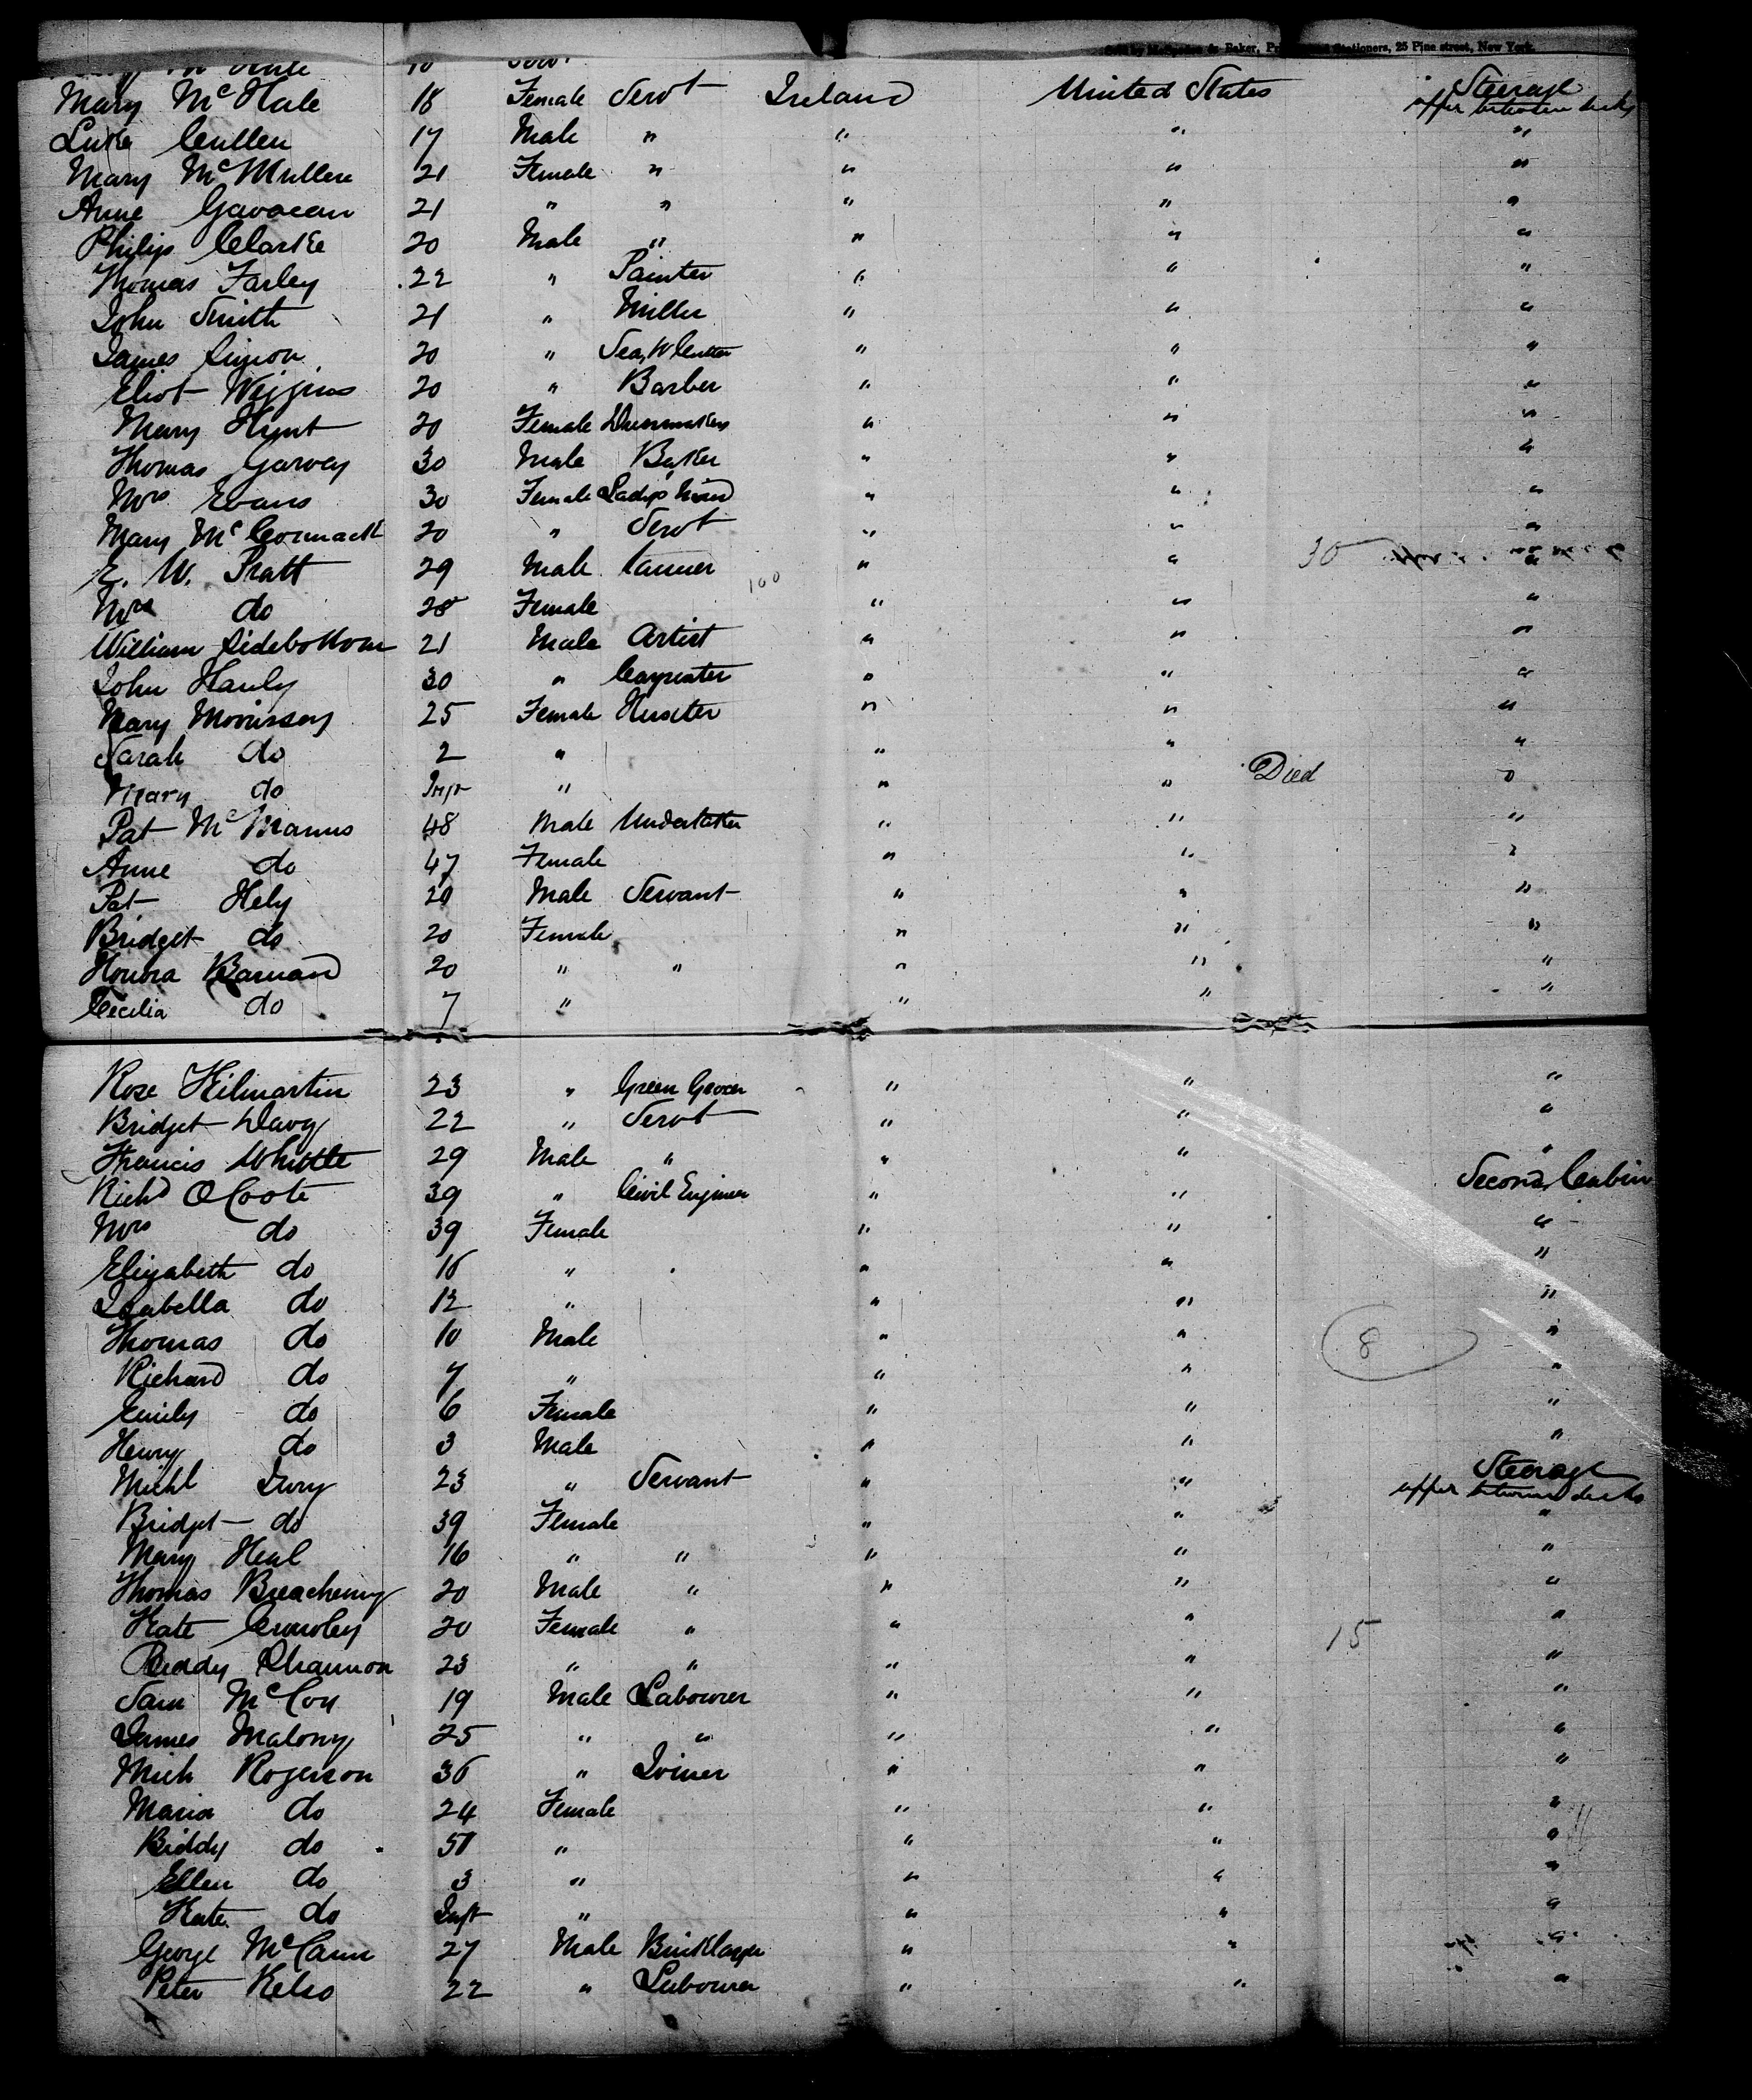 Baker, Stationers, 25 Pine street, New York.
Mary McHale 18 Female Servt Ireland United States Steerage upper between decks
Luke Cullen 17 Male " " " "
Mary McMullen 21 Female " " " "
Anne Gavacan 21 " " " " "
Philip Clarke 20 Male " " " "
Thomas Farley 22 " Painter " " "
John Smith 21 " Miller " " "
James 20 " " " "
Eliot Wiggins 20 " Barber " " "
Mary Hynt 20 Female Dressmaker " " "
Thomas Garvey 30 Male Baker " " "
Mrs Evans 30 Female Ladys Maid " " "
Mary McCormack 20 " Servt " " "
E. W. Pratt 29 Male Tanner " " 30 "
100
Mrs do 28 Female " " "
William Sidebottom 21 Male Artist " " "
John Hanly 30 " Carpenter " " "
Mary Morrissey 25 Female Huxter " " "
Sarah do 2 " " " "
Mary do Inft " " " Died "
Pat McManus 48 Male Undertaker " " "
Anne do 47 Female " " "
Pat Hely 20 Male Servant " " "
Bridget do 20 Female " " "
Honora Barnard 20 " " " " "
Cecilia do 7 " " " "
Rose Kilmartin 23 " Green Grocer " " "
Bridget Davy 22 " Servt " " "
Francis Whittle 29 Male " " " "
Richd O Coote 39 " Civil Engineer " " Second Cabin
Mrs do 39 Female " " "
Elizabeth do 16 " " " "
Isabella do 12 " " " "
Thomas do 10 Male " " "
8
Richard do 7 " " " "
Emily do 6 Female " " "
Henry do 3 Male " " "
Michl Ivory 23 " Servant " " Steerage upper between decks
Bridget do 39 Female " " "
Mary Heal 16 " " " " "
Thomas 20 Male " " " "
Kate Crowley 20 Female " " " "
15
Biddy Shannon 23 " " " " "
Sam McCoy 19 Male Labourer " " "
James Malony 25 " " " " "
Mich Rogerson 36 " Joiner " " "
Maria do 24 Female " " "
Biddy do 50 " " " "
Ellen do 3 " " " "
Kate do Inft " " " "
George McCann 27 Male Bricklayer " " "
Peter Kelso 22 " Labourer " " "